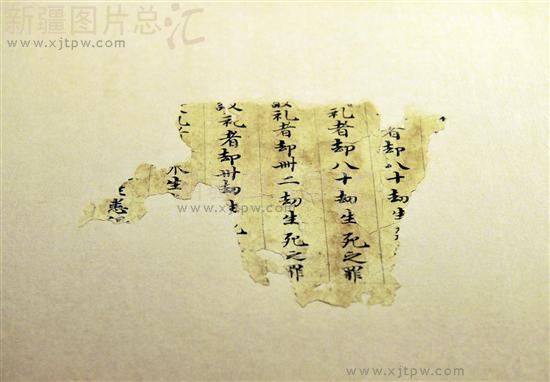 新疆图片总汇
www.xjtpw.com
者却八十劫生
礼者却八十劫生死之罪
礼者却卌二劫生死之罪
礼者却卌劫生
生
www.xjtpw.com
www.xjtpw.com